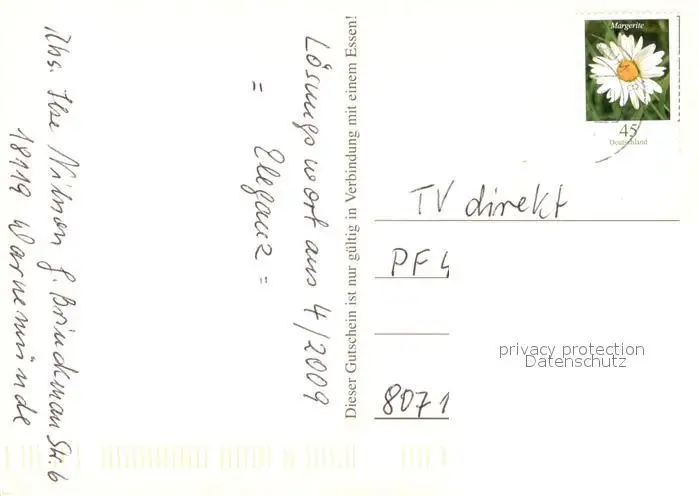 Margerite
45
Deutschland
TV direkt
PF 4
8071
privacy protection
Datenschutz
Dieser Gutschein ist nur gültig in Verbindung mit einem Essen!
Lösungswort aus 4/2009
= Eleganz =
Abs. Ilse J. Brinckman Str. 6
18119 Warnemünde